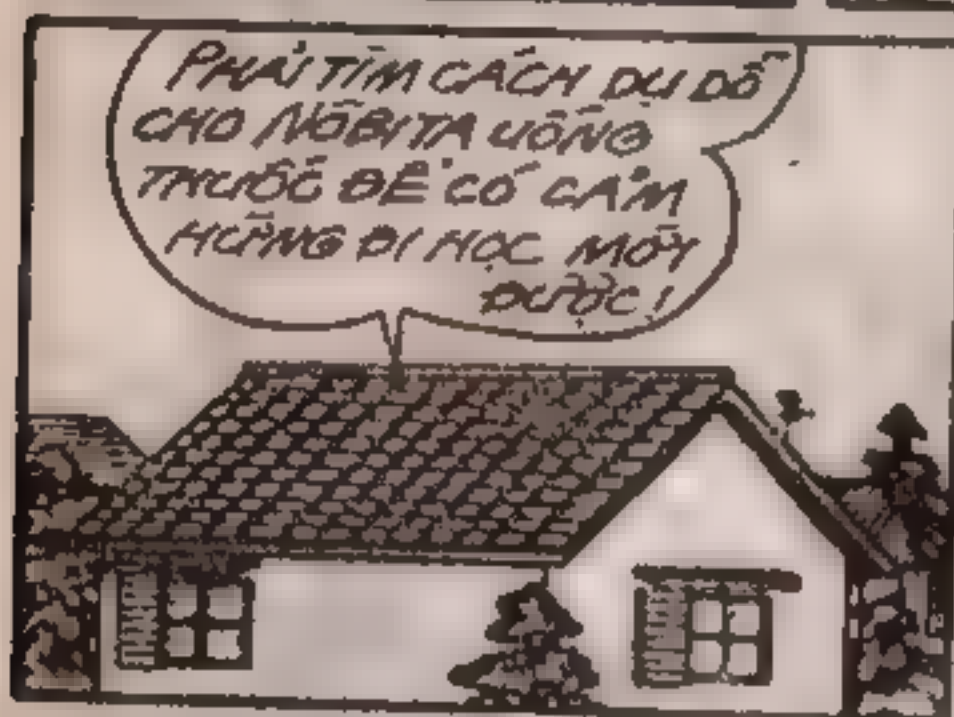 PHẢI TÌM CÁCH DỤ DỖ
CHO NÔBITA UỐNG
THUỐC ĐỂ CÓ CẢM
HỨNG ĐI HỌC MỚI
ĐƯỢC!